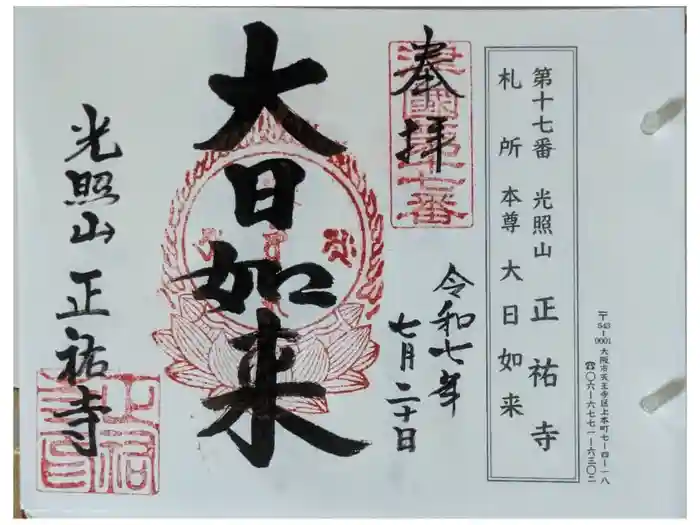 第十七番 光照山 正祐寺
札所 本尊 大日如来
〒543-0001 大阪市天王寺区上本町七-四-一八
☎〇六-六七七一-六三〇二
奉拝
令和七年
七月二十日
大日如来
光照山 正祐寺